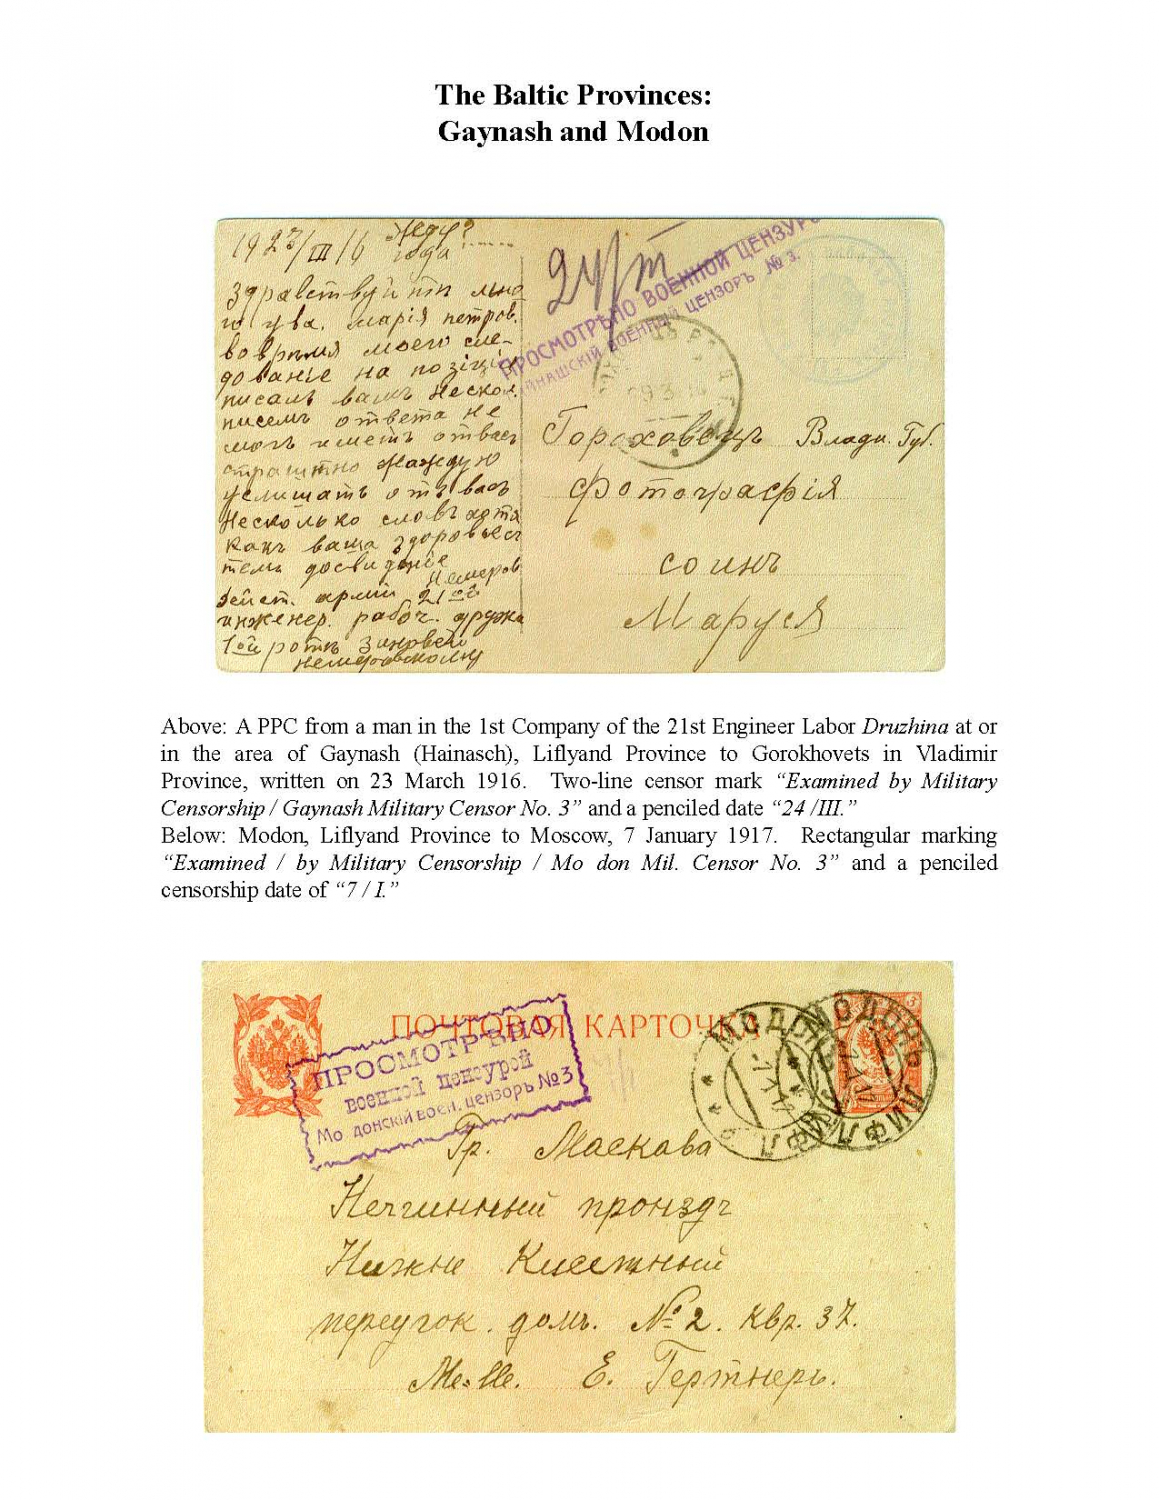 The Baltic Provinces:
Gaynash and Modon
19 23/III 16
года
здравствуйти
марія петров.
во время моего сле-
дованіе на позіціи
писалъ вамъ нескол.
писемъ ответа не
могъ
страштно жаждую
услишать отъ васъ
несколько словъ
какъ ваша здоровье
темъ досвиданіе
Дейст. арміи 21ой
инженер. рабоч. дружи
1ой роты
24/III
ПРОСМОТРѢНО ВОЕННОЙ ЦЕНЗУРО
ЙНАШСКІЙ ВОЕННЫЙ ЦЕНЗОРЪ № 3.
Гороховецъ Влади. Губ.
Фотографія
Маруся
Above: A PPC from a man in the 1st Company of the 21st Engineer Labor Druzhina at or
in the area of Gaynash (Hainasch), Liflyand Province to Gorokhovets in Vladimir
Province, written on 23 March 1916. Two-line censor mark “Examined by Military
Censorship / Gaynash Military Censor No. 3” and a penciled date “24 /III.”
Below: Modon, Liflyand Province to Moscow, 7 January 1917. Rectangular marking
“Examined / by Military Censorship / Mo don Mil. Censor No. 3” and a penciled
censorship date of “7 / I.”
ПОЧТОВАЯ КАРТОЧКА
ПРОСМОТРѢНО
военной цензурой
Мо донскій воен. цензоръ №3
МОДОНЪ ЛИФЛ
МОДОНЪ ЛИФЛ
3
Гр. Маскава
Неглинный проѣздъ
Нижне Кисельный
переулок. домъ. № 2. кв. 37.
М-lle. Е. Гертнеръ.